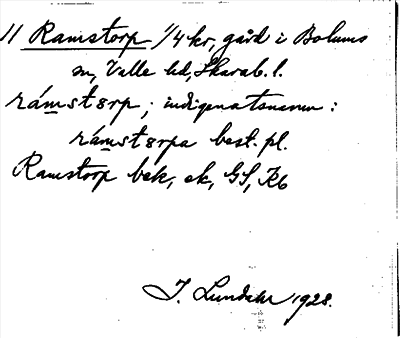 11 Ramstorp 1/4 kr, gård i Bolums
sn, Valle hd, Skarab. l.
rámstorp; indigenatsnamn:
rámstorpa best. pl.
Ramstorp bek, ek, GS, Kb
J. Lundahl 1928.